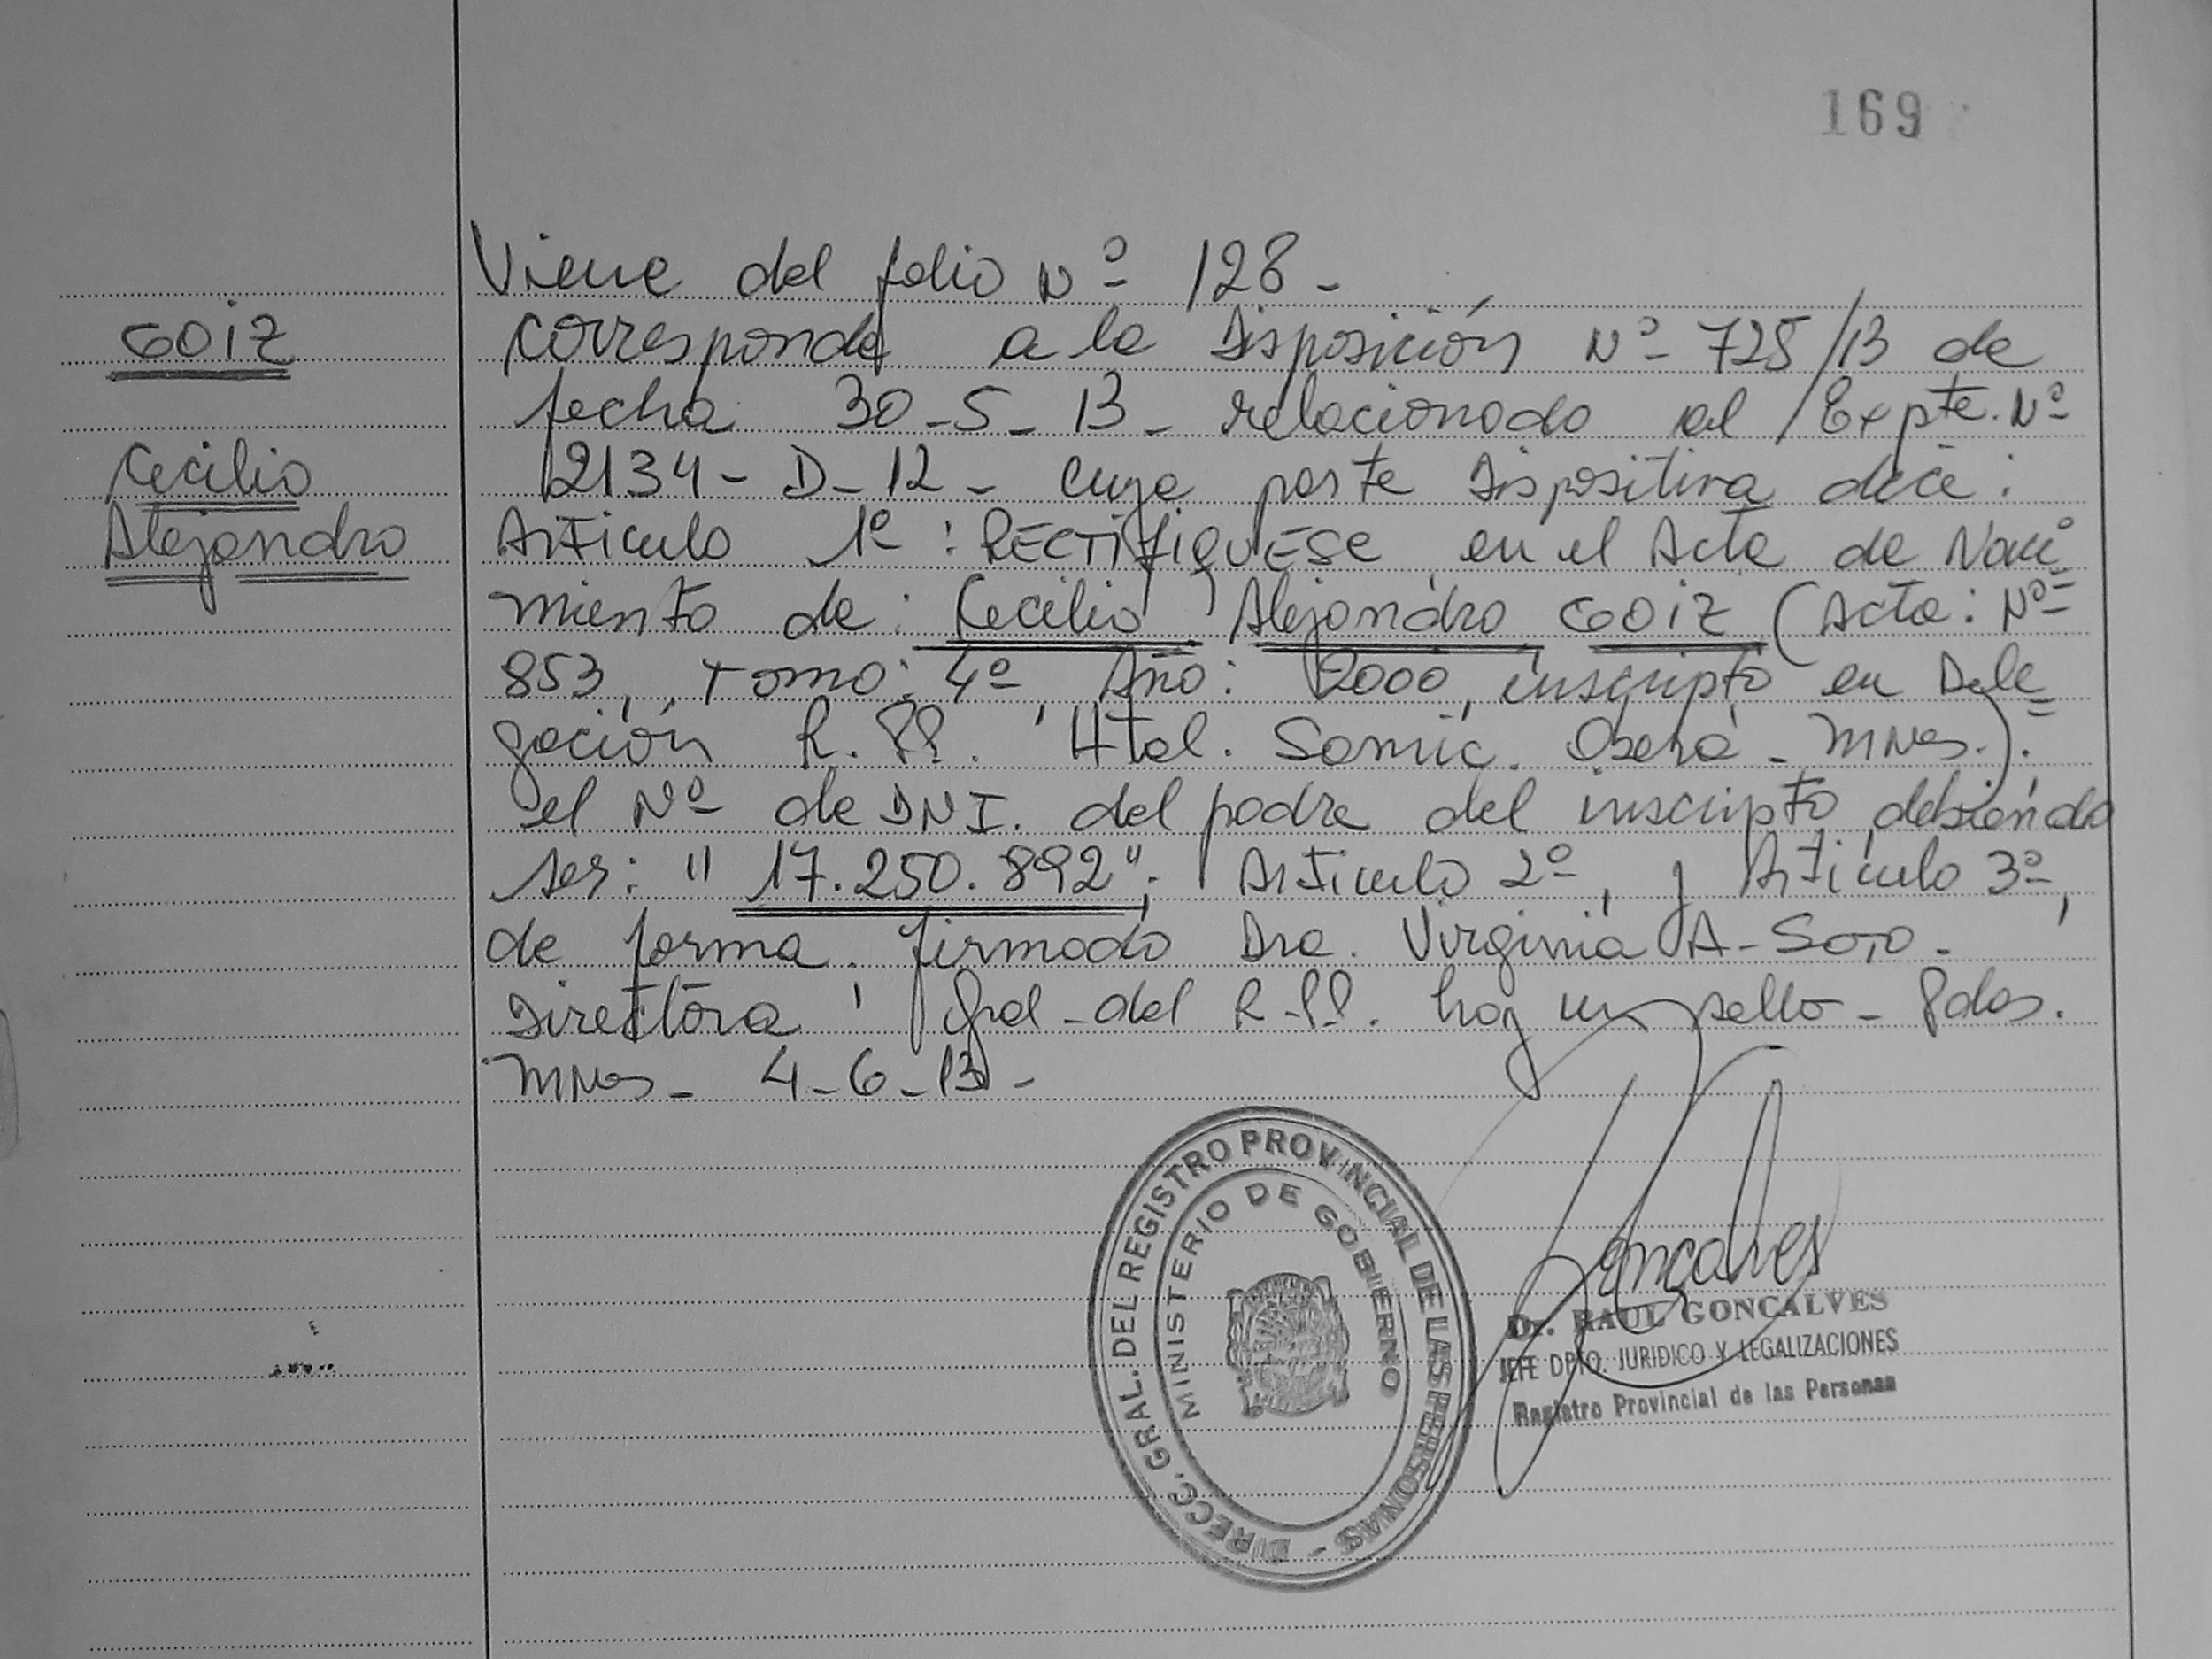 169
Viene del folio Nº 128-
GOIZ
Corresponde a la Disposición Nº 725/13 de
fecha 30-5-13- relacionado al Expte. Nº
Cecilio
2134-D-12- cuya parte Dispositiva dice:
Alejandro
Artículo 1º: RECTIFIQUESE en el Acta de Naci
miento de: Cecilio Alejandro GOIZ (Acta: Nº
853, Tomo: 4º, Año: 2000, inscripto en Dele
gación R.PP. Htal. Samic. Oberá - Mnes.).
el Nº de DNI. del padre del inscripto, debiendo
ser: "17.250.892". Artículo 2º, y Artículo 3º,
de forma. firmado Dra. Virginia A-Soto-
Directora Gral-del R-PP. hay un sello- Pdas.
Mnes- 4-6-13-
DIRECC. GRAL. DEL REGISTRO PROVINCIAL DE LAS PERSONAS -
MINISTERIO DE GOBIERNO
Goncalves
Dr. RAUL GONCALVES
JEFE DPTO. JURIDICO Y LEGALIZACIONES
Registro Provincial de las Personas